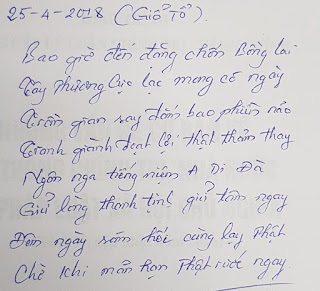 25-4-2018 (Giỗ Tổ).
Bao giờ đến đặng chốn Bồng lai
Tây Phương Cực lạc mong có ngày
Trần gian say đắm bao phiền não
Tranh giành đoạt lợi thật thảm thay
Ngôn nga tiếng niệm A Di Đà
Giữ lòng thanh tịnh giữ tâm ngay
Đêm ngày sám hối cùng lạy Phật
Chờ khi mãn hạn Phật rước ngay